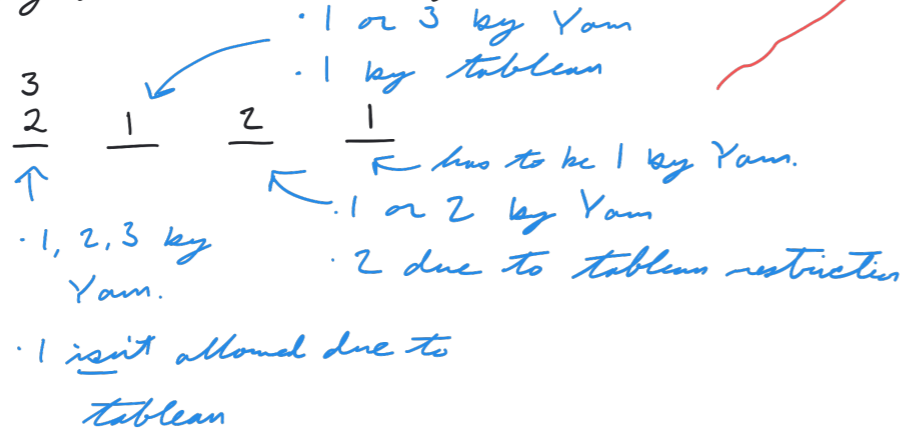 · 1 or 3 by Yam
· 1 by tableau
3
2 1 2 1
has to be 1 by Yam.
· 1 or 2 by Yam
· 1, 2, 3 by
Yam.
· 2 due to tableau restriction
· 1 isn't allowed due to
tableau